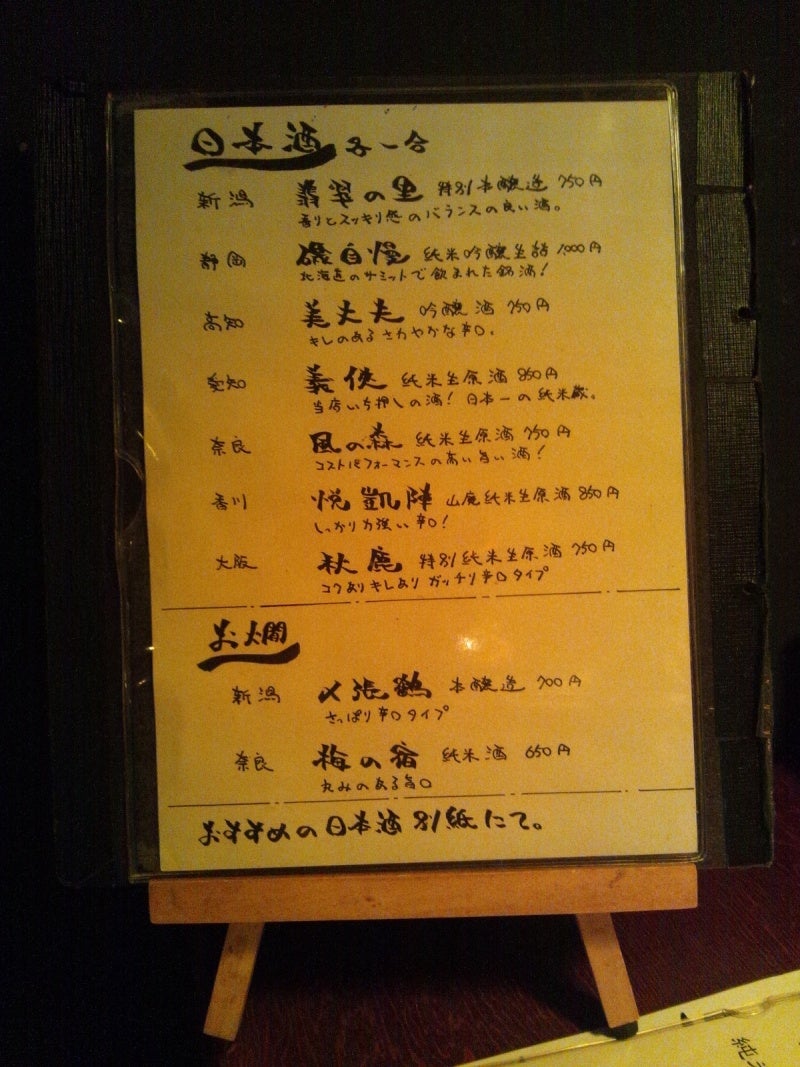 日本酒 各一合
新潟 翡翠の里 特別本醸造 750円
香りとスッキリ感のバランスの良い酒。
静岡 磯自慢 純米吟醸生詰 1,000円
北海道のサミットで飲まれた銘酒!
高知 美丈夫 吟醸酒 750円
キレのあるさわやかな辛口。
愛知 義侠 純米生原酒 850円
当店いち押しの酒! 日本一の純米蔵。
奈良 風の森 純米生原酒 750円
コストパフォーマンスの高い旨い酒!
香川 悦凱陣 山廃純米生原酒 850円
しっかり力強い辛口!
大阪 秋鹿 特別純米生原酒 750円
コクありキレあり ガッチリ辛口タイプ
お燗
新潟 〆張鶴 本醸造 700円
さっぱり辛口タイプ
奈良 梅の宿 純米酒 650円
丸みのある旨口
おすすめの日本酒別紙にて。
純